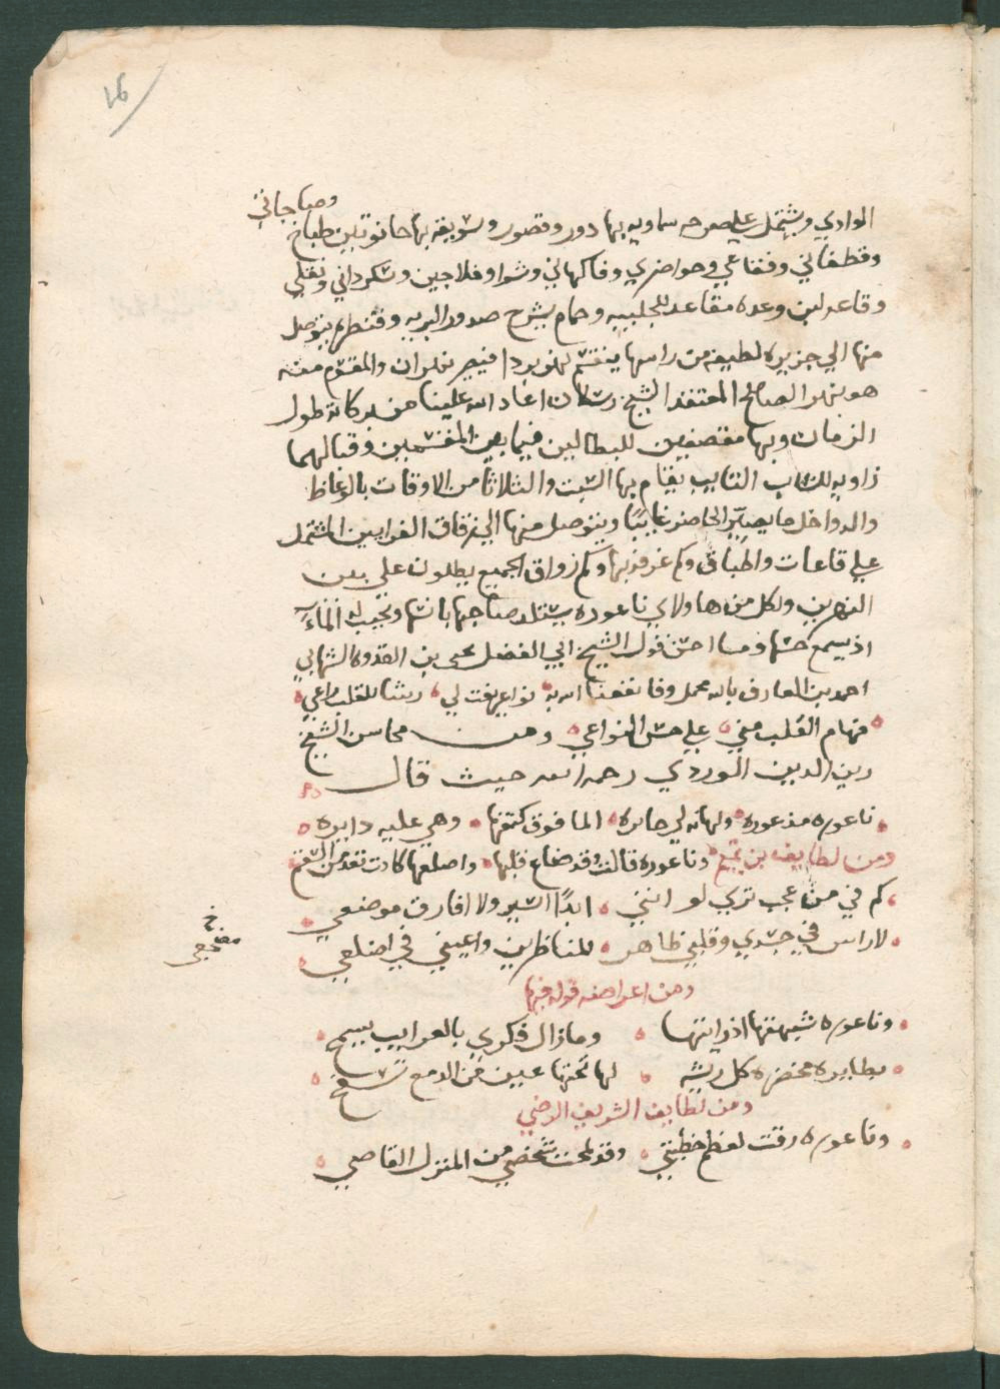 ١٦
وصباحاتي
الوادي ويشتمل على صرحه سماويه بها دور وقصور وسويقه بها حانوتين طباخ
وقطفاني وفقاعي وحواضري وفاكهاني وشوا وفلاجين وسكرداني ونقلي
وقاعه لبن وعده مقاعد للجلبيه وحمام يشرح صدور البريه وقنطره يتوصل
منها الي جزيره لطيفه من راسها ينقسم نهر بردا فيصير نهران والمقسوم منه
هو نهر الصالح المعتقد الشيخ رسلان اعاد الله علينا من بركاته طول
الزمان وبها مقصفين للبطالين فيما بين المقسمين وقبالهما
زاويه للشاب التايب يقام بها السبت والثلاثا من الاوقات بالوعاظ
والدواخل ما يصير الحاضر غايبًا ويتوصل منها الي زقاق الفرايين المشتمل
علي قاعات واطباق وكم غرفه بها وكم رواق الجميع يطلون علي بين
النهرين ولكل من هاولاي ناعوره يستلد صاحبها بانتها وتجيب له الغناء
اذ يسمع حسها وما احسن قول الشيخ ابي الفضل يحيى بن القدوه الشهابي
احمد بن العارف بالله محمد وفا نفعنا الله به نواعير نعت لي رشا للقلب راعي
فهام القلب مني علي حس النواعي ومن محاسن الشيخ
زين الدين الوردي رحمه الله حيث قال
ناعوره مذعوره ولهانه لي حايره الما فوق كتفها وهي عليه دايره
ومن لطايف بن تميم وناعوره قالت وقد ضاع قلبها واضلعها كادت تعد من السقم
كم في من عجب تري لو انني ابدًا اسير ولا افارق موضعي
لا راس في جسدي وقلبي ظاهر للناظرين واعيني في اضلعي
خ مضجعي
ومن اغراضه قوله فيها
وناعوره شبهتها اذ رايتها وما زال فكري بالغرايب يسبح
بطايره مخضره كل ريشه لها تحتها عين من الدمع تسفح
ومن لطايف الشريف الرضي
وناعوره رقت لعظم خطيتي وقد لمحت شخصي من المنزل القاصي